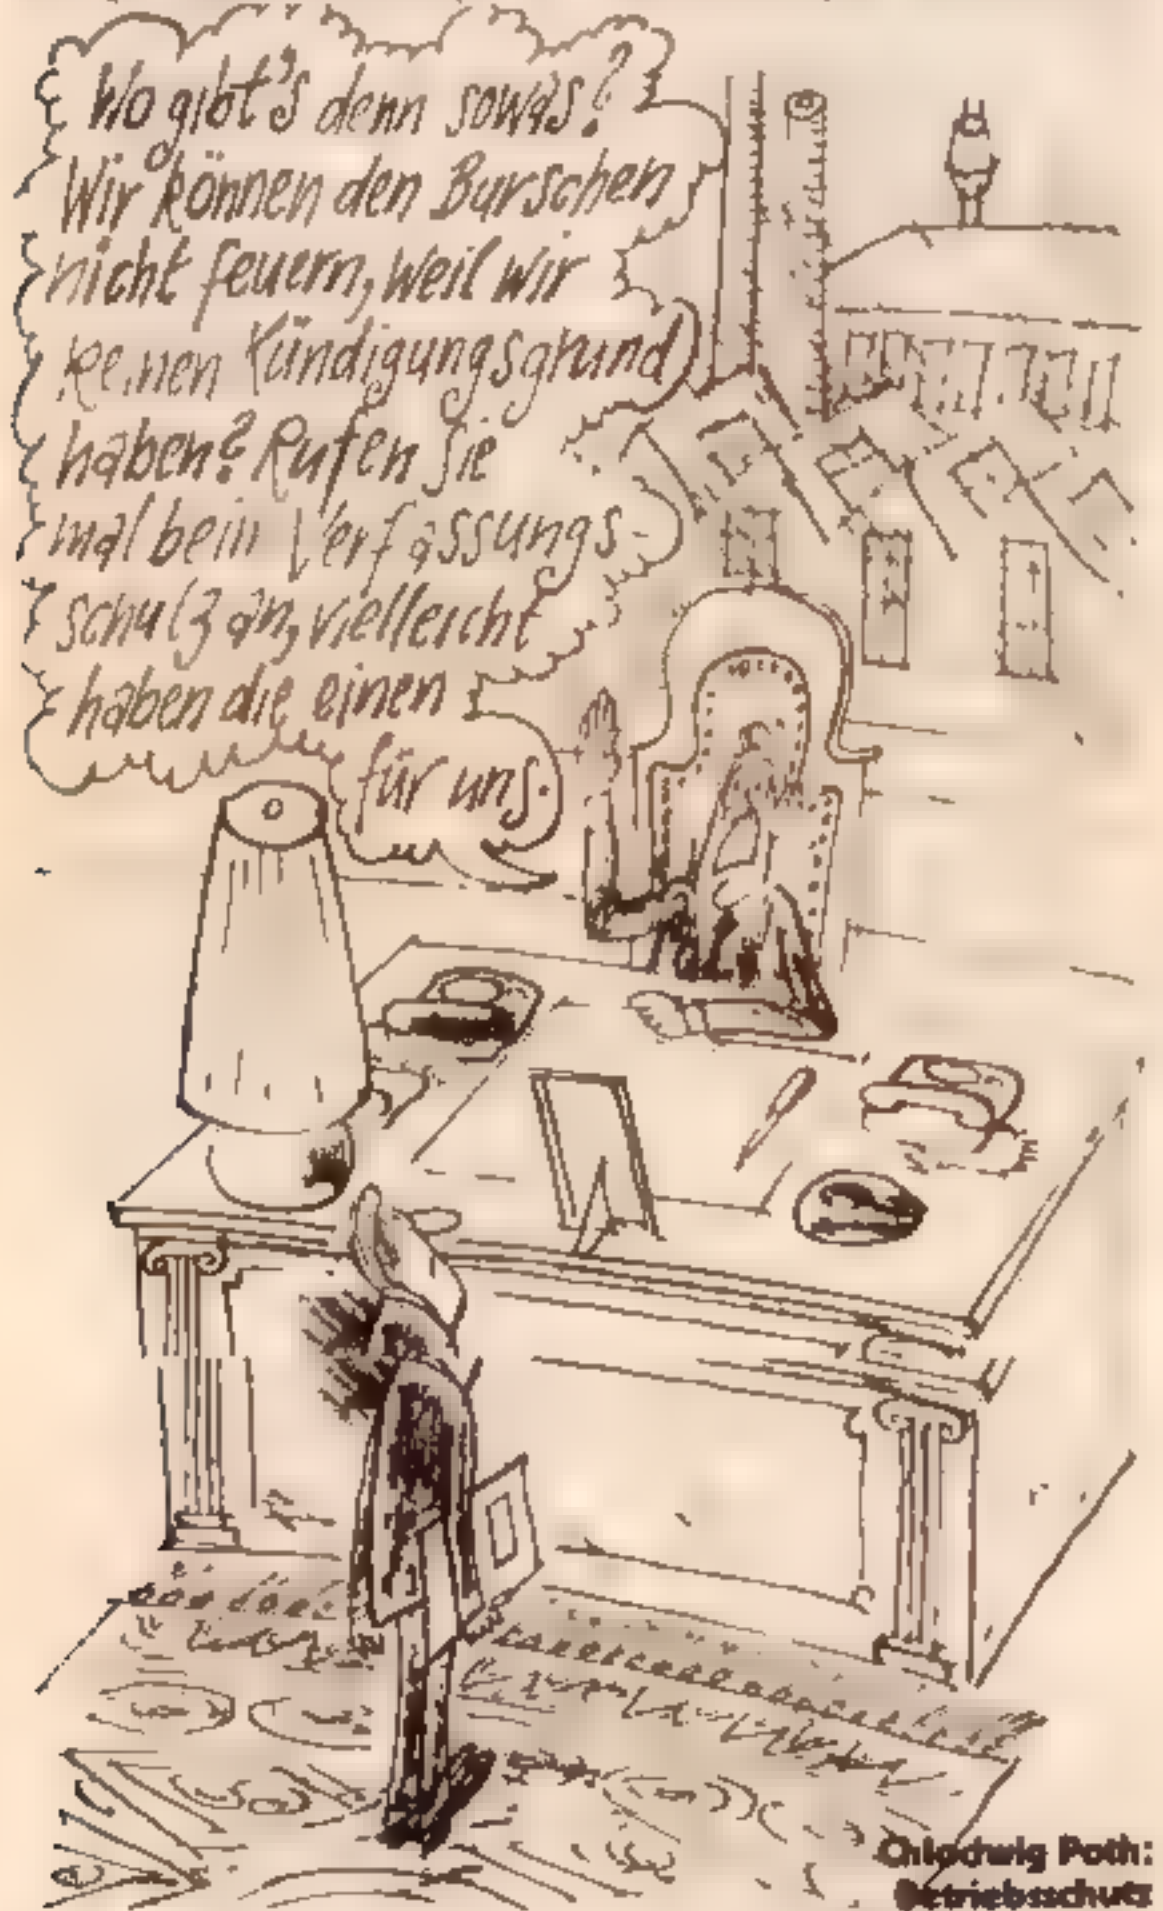 Wo gibt's denn sowas?
Wir können den Burschen
nicht feuern, weil wir
keinen Kündigungsgrund
haben? Rufen Sie
mal beim Verfassungs-
schutz an, vielleicht
haben die einen
für uns.
Chlodwig Poth:
Betriebsschutz